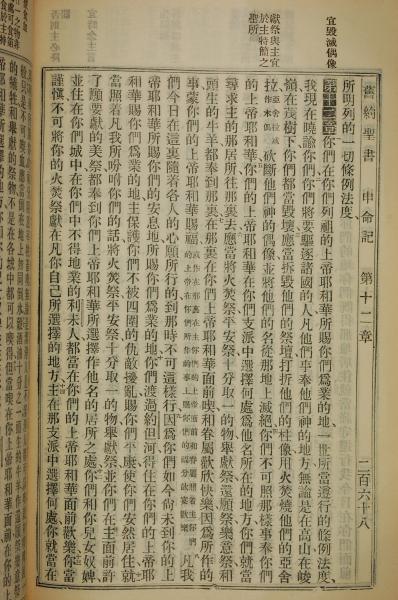 舊約聖書 申命記 第十二章 二百六十八
宜毀滅偶像
所明列的一切條例法度、
第十二章 你們在你們列祖的上帝耶和華所賜你們爲業的地一世所當遵行的條例法度、
我現在曉諭你們你們將要驅逐諸國的人凡他們事奉他們神的地方無論是在高山在峻
嶺在茂樹下你們都當毀壞應當拆毀他們的祭壇打折他們的柱像用火焚燒他們的亞舍
拉亞舍拉或作木偶砍斷他們神的偶像並將他們的名從那地上滅絕你們不可照那樣事奉你們
獻祭與主宜
於主特簡之
聖所
的上帝耶和華你們的上帝耶和華在你們支派中選擇何處爲他名所在的地方你們就當
尋求主的那居所往那裏去應當將火焚祭平安祭十分取一的物舉獻祭還願祭樂意祭和
頭生的牛羊都奉到那裏在那裏你們的上帝耶和華面前喫和眷屬歡欣快樂因爲所作的
事蒙你們的上帝耶和華賜福 凡我
們今日在這裏隨着各人的心願所行的到那時不可這樣行因爲你們如今尚未到你的上
帝耶和華所賜你們的安息地所賜你們爲業的地你們渡過約但河得住在你們的上帝耶
和華使你們爲業的地主保護你們不被四圍的仇敵擾亂賜你們平康使你們安然居住就
當照着凡我所吩咐你們的話將火焚祭平安祭十分取一的物舉獻祭並你們在主面前許
了願要獻的美祭都奉到你們上帝耶和華所選擇作他名的居所之處你們和你兒女奴婢
並住在你們城中在你們中不得地業的利未人都當在你們的上帝耶和華面前歡樂你當
謹慎不可將你的火焚祭獻在凡你自己所選擇的地方主在那支派中選擇何處你就當在